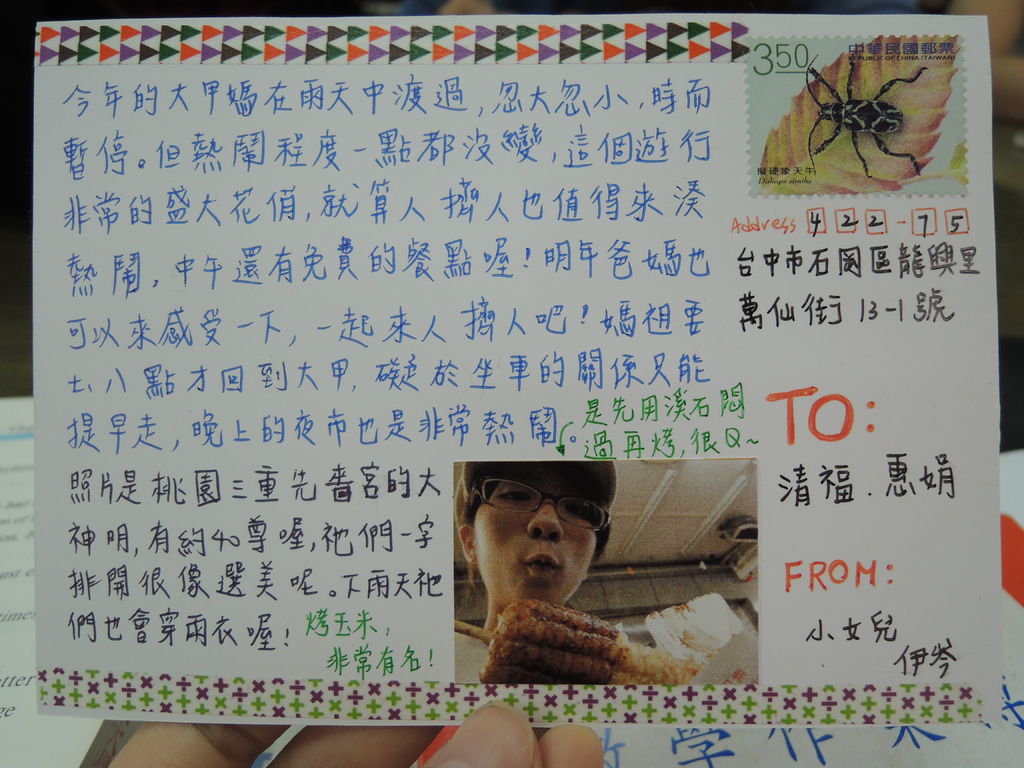 今年的大甲媽在雨天中渡過,忽大忽小,時而
暫停。但熱鬧程度一點都沒變,這個遊行
非常的盛大花俏,就算人擠人也值得來湊
熱鬧,中午還有免費的餐點喔!明年爸媽也
可以來感受一下,一起來人擠人吧!媽祖要
七、八點才回到大甲,礙於坐車的關係只能
提早走,晚上的夜市也是非常熱鬧。
是先用溪石悶
過再烤,很Q~
照片是桃園三重先嗇宮的大
神明,有約40尊喔,祂們一字
排開很像選美呢。下雨天祂
們也會穿雨衣喔!
烤玉米,
非常有名!
350
中華民國郵票
REPUBLIC OF CHINA (TAIWAN)
擬硬象天牛
Dohops similis
Address 422-75
台中市石岡區龍興里
萬仙街 13-1號
TO:
清福.惠娟
FROM:
小女兒
伊岑
學作